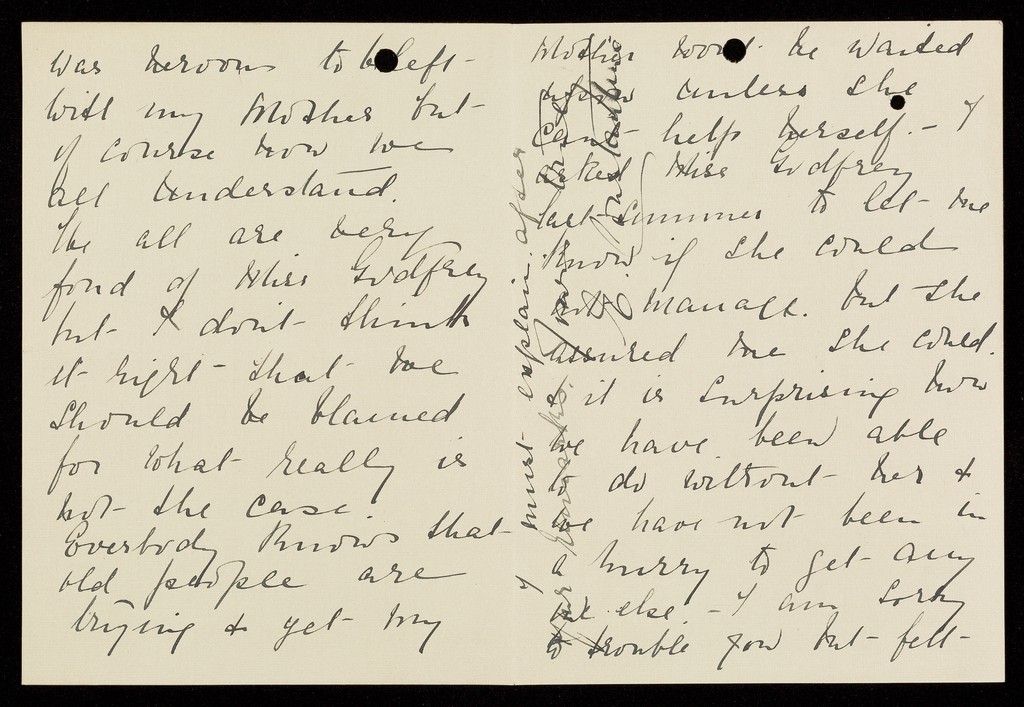 was nervous to be left
with my Mother but
of course now we
all understand.
We all are very
fond of Miss Godfrey
but I don't think
it right that we
should be blamed
for what really is
not the case.
Everbody knows that
old people are
trying & yet my
Mother won't be waited
upon unless she
can't help herself. - I
asked Miss Godfrey
last summer to let me
know if she could
not manage. but she
assured me she could.
& it is surprising how
we have been able
to do without her &
we have not been in
a hurry to get any
one else. - I am sorry
to trouble you but felt
I must explain after
your remarks.